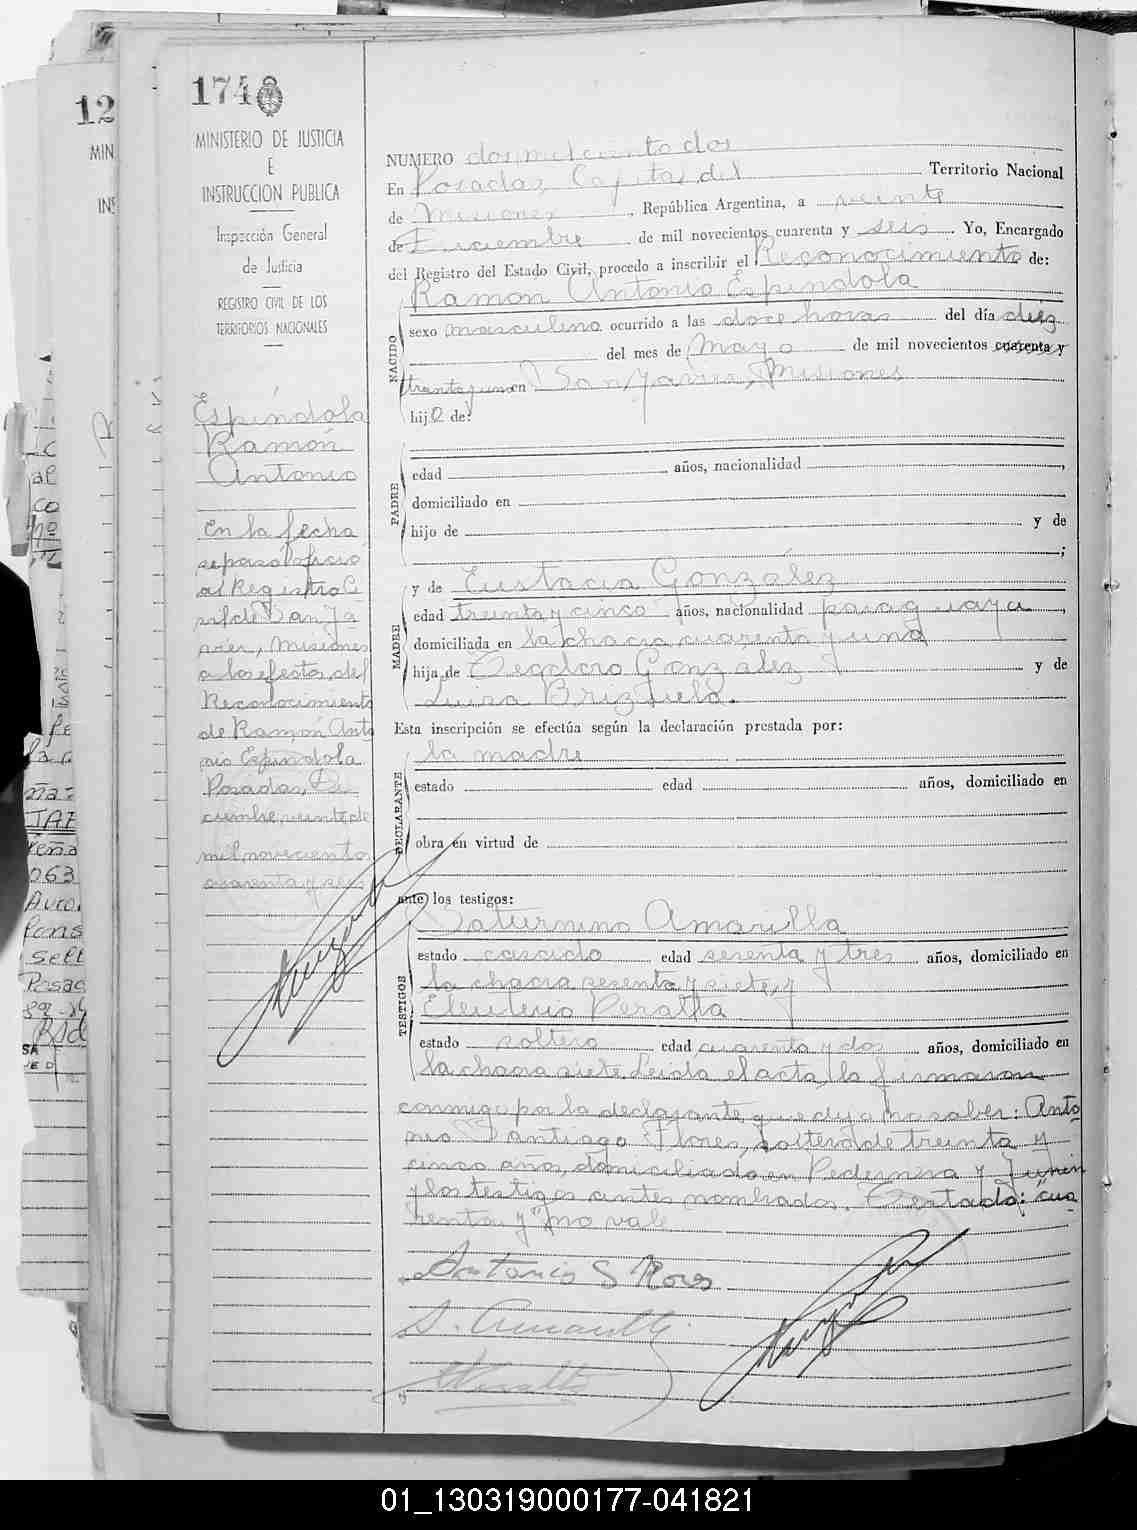 174
MINISTERIO DE JUSTICIA
E
INSTRUCCION PUBLICA
Inspección General
de Justicia
REGISTRO CIVIL DE LOS
TERRITORIOS NACIONALES
Espíndola
Ramón
Antonio
En la fecha
se pasó oficio
al Registro Ci
vil de San Ja
vier, Misiones
a los efectos del
Reconocimiento
de Ramón Anto
nio Espíndola
Posadas, Di
ciembre veinte de
mil novecientos
cuarenta y seis
NUMERO dos mil ciento dos
En Posadas, Capital del Territorio Nacional
de Misiones, República Argentina, a veinte
de Diciembre de mil novecientos cuarenta y seis. Yo, Encargado
del Registro del Estado Civil, procedo a inscribir el Reconocimiento de:
Ramon Antonio Espindola
NACIDO
sexo masculino ocurrido a las doce horas del día diez
del mes de Mayo de mil novecientos cuarenta y
treinta y uno en San Javier, Misiones
hijo de:
PADRE
edad años, nacionalidad ,
domiciliado en
hijo de y de
;
MADRE
y de Eustacia González
edad treinta y cinco años, nacionalidad paraguaya,
domiciliada en la chacra cuarenta y una
hija de Teodoro González y de
Luisa Brizuela.
Esta inscripción se efectúa según la declaración prestada por:
la madre
DECLARANTE
estado edad años, domiciliado en
obra en virtud de
ante los testigos:
TESTIGOS
Saturnino Amarilla
estado casado edad sesenta y tres años, domiciliado en
la chacra sesenta y siete, y
Eleuterio Peralta
estado soltero edad cuarenta y dos años, domiciliado en
la chacra siete. Leída el acta, la firmaron
conmigo por la declarante que dijo no saber: Anto
nio Santiago Flores, soltero de treinta y
cinco años, domiciliado en Pedernera y Junin
y los testigos antes nombrados. Testado: "cua
renta y" no vale
Antonio S Flores
S. Amarilla
12
MIN
INS
063
Posad
01_130319000177-041821